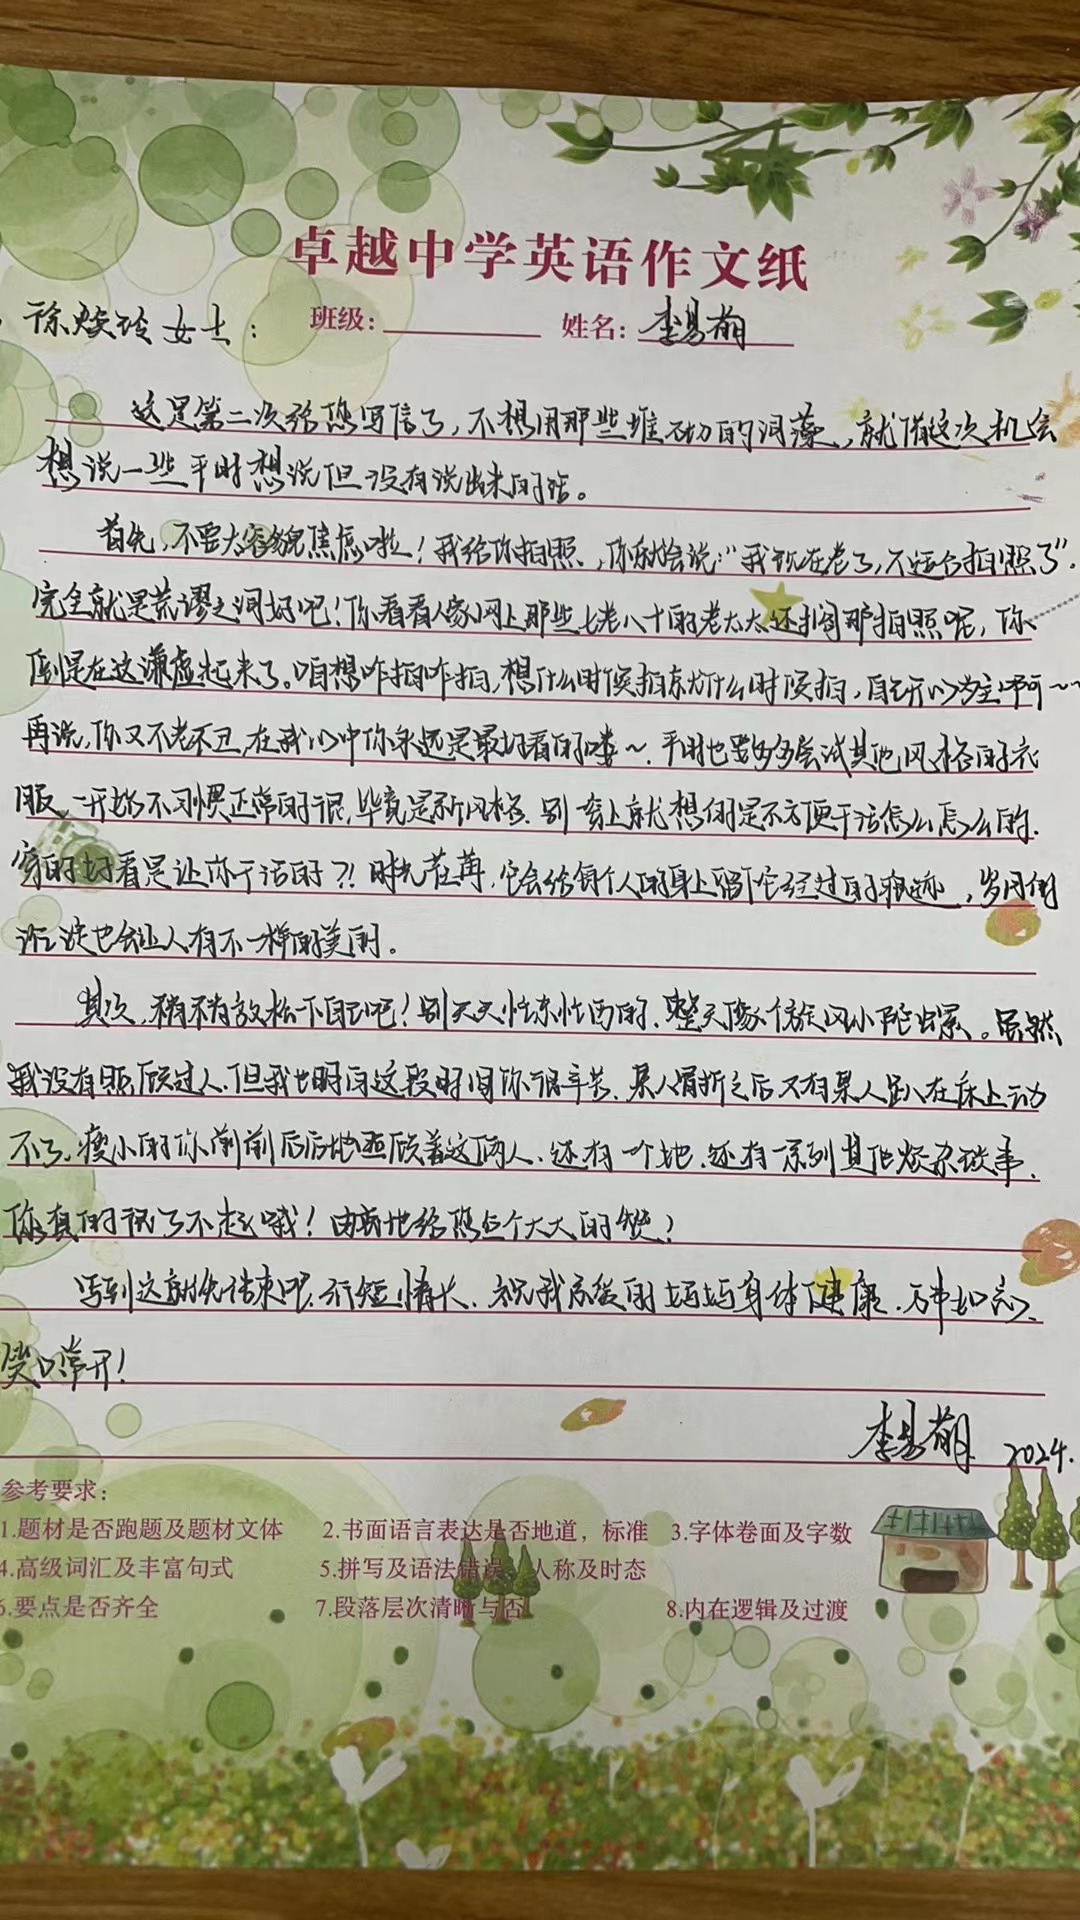 卓越中学英语作文纸
徐焕玲女士:
班级: 姓名: 李易萌
这是第二次给您写信了,不想用那些堆砌的词藻,就借这次机会
想说一些平时想说但没有说出来的话。
首先,不要太容貌焦虑啦!我给你拍照,你就会说:“我现在老了,不适合拍照了”.
完全就是荒谬之词好吧!你看看人家网上那些七老八十的老太太还搁那拍照呢,你
倒是在这谦虚起来了。咱想咋拍咋拍,想什么时候拍就什么时候拍,自己开心为主啊~~
再说,你又不老不丑,在我心中你永远是最好看的喽~.平时也要多多尝试其他风格的衣
服,一开始不习惯正常的很,毕竟是新风格.别穿上就想倒是不方便干活怎么怎么的.
穿的好看是让你干活的?!时光荏苒,它会给每个人的身上留下它经过的痕迹,岁月倒
沉淀也会让人有不一样的美的。
其次,稍稍放松下自己吧!别天天忙东忙西的,整天像个旋风小陀螺似的。虽然
我没有照顾过人,但我也明白这段时间你很辛苦.某人骨折之后又有某人趴在床上动
不了,瘦小的你前前后后地照顾着这俩人、还有一个地.还有一系列其他烦杂琐事.
你真的很了不起哦!由衷地给您点个大大的赞!
写到这就先结束吧,纸短情长.祝我亲爱的妈妈身体健康、万事如意、
笑口常开!
李易萌 2024.
参考要求:
1.题材是否跑题及题材文体 2.书面语言表达是否地道,标准 3.字体卷面及字数
4.高级词汇及丰富句式 5.拼写及语法错误、人称及时态
6.要点是否齐全 7.段落层次清晰与否 8.内在逻辑及过渡